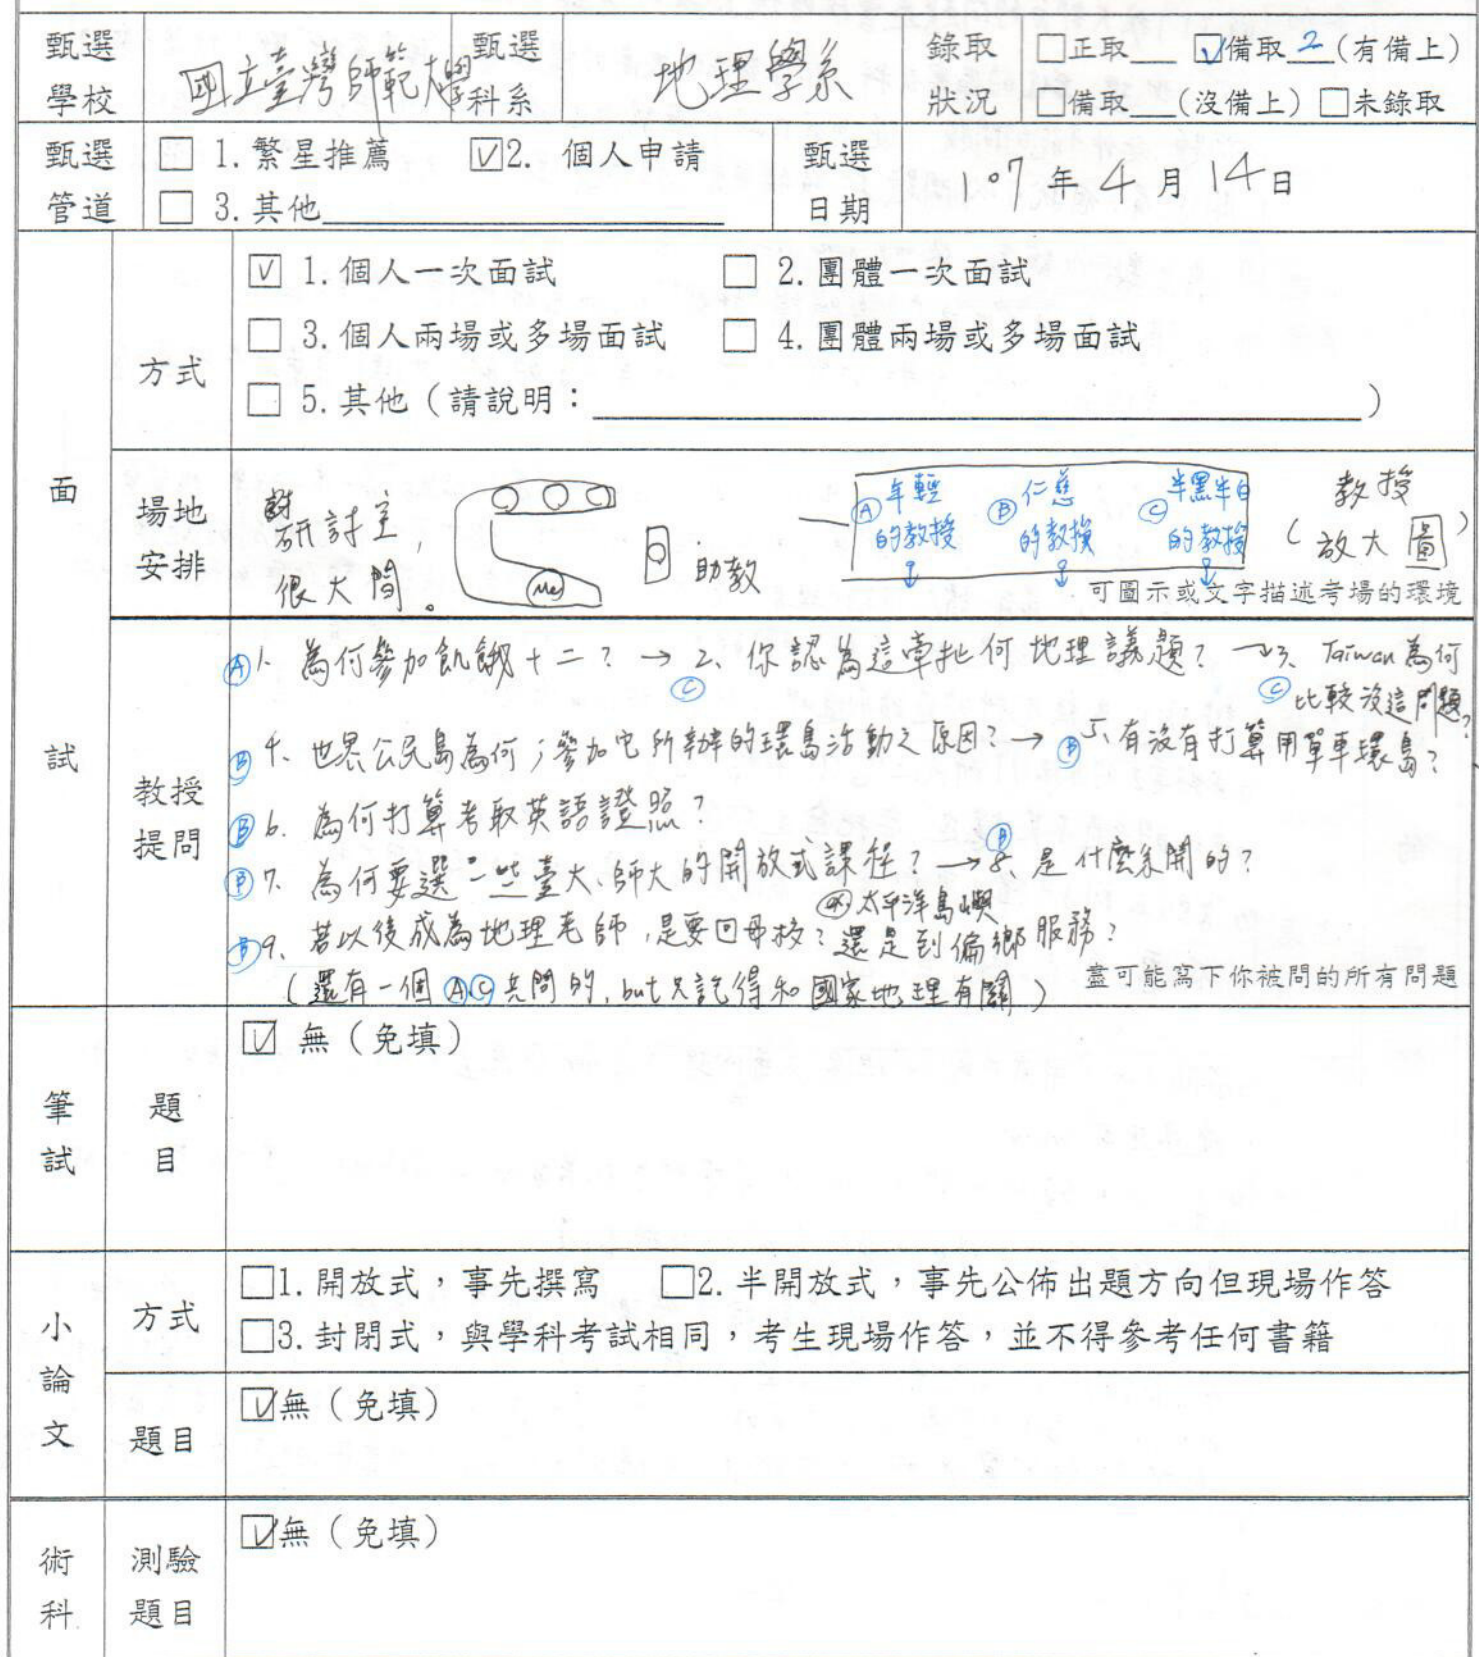 甄選 學校 國立臺灣師範大學 甄選 科系 地理學系 錄取 狀況 □正取___ ☑備取 2 (有備上)
□備取___(沒備上) □未錄取
甄選 管道 □ 1.繁星推薦 ☑2. 個人申請 甄選 日期 107年4月14日
□ 3.其他
面試
方式
☑ 1.個人一次面試 □ 2.團體一次面試
□ 3.個人兩場或多場面試 □ 4.團體兩場或多場面試
□ 5.其他(請說明:                )
場地 安排
研討室,
很大間。
Me
助教
Ⓐ年輕的教授 Ⓑ仁慈的教授 Ⓒ半黑半白的教授
(教授放大圖)
可圖示或文字描述考場的環境
教授 提問
Ⓐ1、為何參加飢餓十二? → Ⓒ2、你認為這牽扯何地理議題? → Ⓒ3、Taiwan為何比較沒這問題?
Ⓑ4、世界公民島為何;參加它所辦的環島活動之原因? → Ⓑ5、有沒有打算用單車環島?
Ⓑ6、為何打算考取英語證照?
Ⓑ7、為何要選一些臺大、師大的開放式課程? → Ⓑ8、是什麼系開的?
太平洋島嶼
Ⓑ9、若以後成為地理老師,是要回母校?還是到偏鄉服務?
(還有一個ⒶⒸ共問的, but只記得和國家地理有關)
盡可能寫下你被問的所有問題
筆試
題目
☑ 無(免填)
小論文
方式
□1.開放式,事先撰寫 □2.半開放式,事先公佈出題方向但現場作答
□3.封閉式,與學科考試相同,考生現場作答,並不得參考任何書籍
題目
☑無(免填)
術科
測驗 題目
☑無(免填)